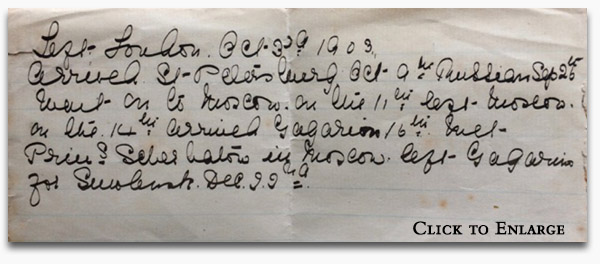 Left London. Oct 3rd 1903,
arrived St-Petersburg Oct 9th Russian Sep 26th
Went on to Moscow. on the 11th left Moscow.
on the. 14th arrived Gagarion 16th. Met
Prin? Scherbatow in Moscow. left Gagarin
for Smolensk. Dec. 22nd.
CLICK TO ENLARGE